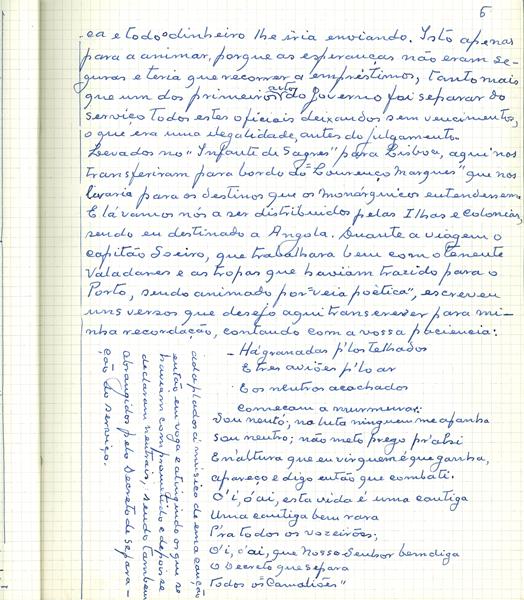 5
ea e todo o dinheiro lhe iria enviando. Isto apenas
para a animar, porque as esperanças não eram se-
guras e teria que recorrer a empréstimos, tanto mais
que um dos primeiros actos do Governo foi separar do
serviço todos estes oficiais deixando-os sem vencimentos,
o que era uma ilegalidade, antes do julgamento.
Levados no "Infante de Sagres" para Lisboa, aqui nos
transferiram para bordo do "Lourenço Marques" que nos
levaria para os destinos que os monárquicos entendessem.
E lá vamos nós a ser distribuidos pelas Ilhas e colonias,
sendo eu destinado a Angola. Durante a viagem o
capitão Soeiro, que trabalhara bem com o tenente
Valadares e as tropas que haviam trazido para o
Porto, sendo animado por "veia poètica", escreveu
uns versos que desejo aqui transcrever para mi-
nha recordação, contando com a vossa paciencia:
- Há granadas p'los telhados
E tres aviões p'lo ar
E os neutros acachados
Começam a murmurar:
Sou neutro; na luta ninguem me apanha
Sou neutro; não meto prego
E n'altura que eu vir quem é que ganha,
apareço e digo então que combati.
O'i, ó ai, esta vida é uma cantiga
Uma cantiga bem rara
P'ra todos os vozeirões;
O'i, ó ai, que Nosso Senhor bem diga
O Decreto que separa
Todos os "Camaliões"
adaptados á música de uma canção
então em voga e atingindo os que se
haviam comprometido e depois se
declaram neutrais, sendo tambem
abrangidos pelo Decreto de separa-
ção do serviço.